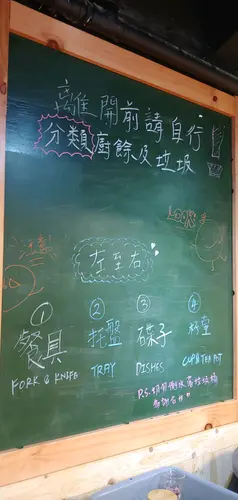 離開前請自行
分類廚餘及垃圾
LOOK
注意!
左至右
① ② ③ ④
餐具 托盤 碟子 杯壺
FORK & KNIFE TRAY DISHES CUP & TEA POT
P.S. 切勿倒水落垃圾桶